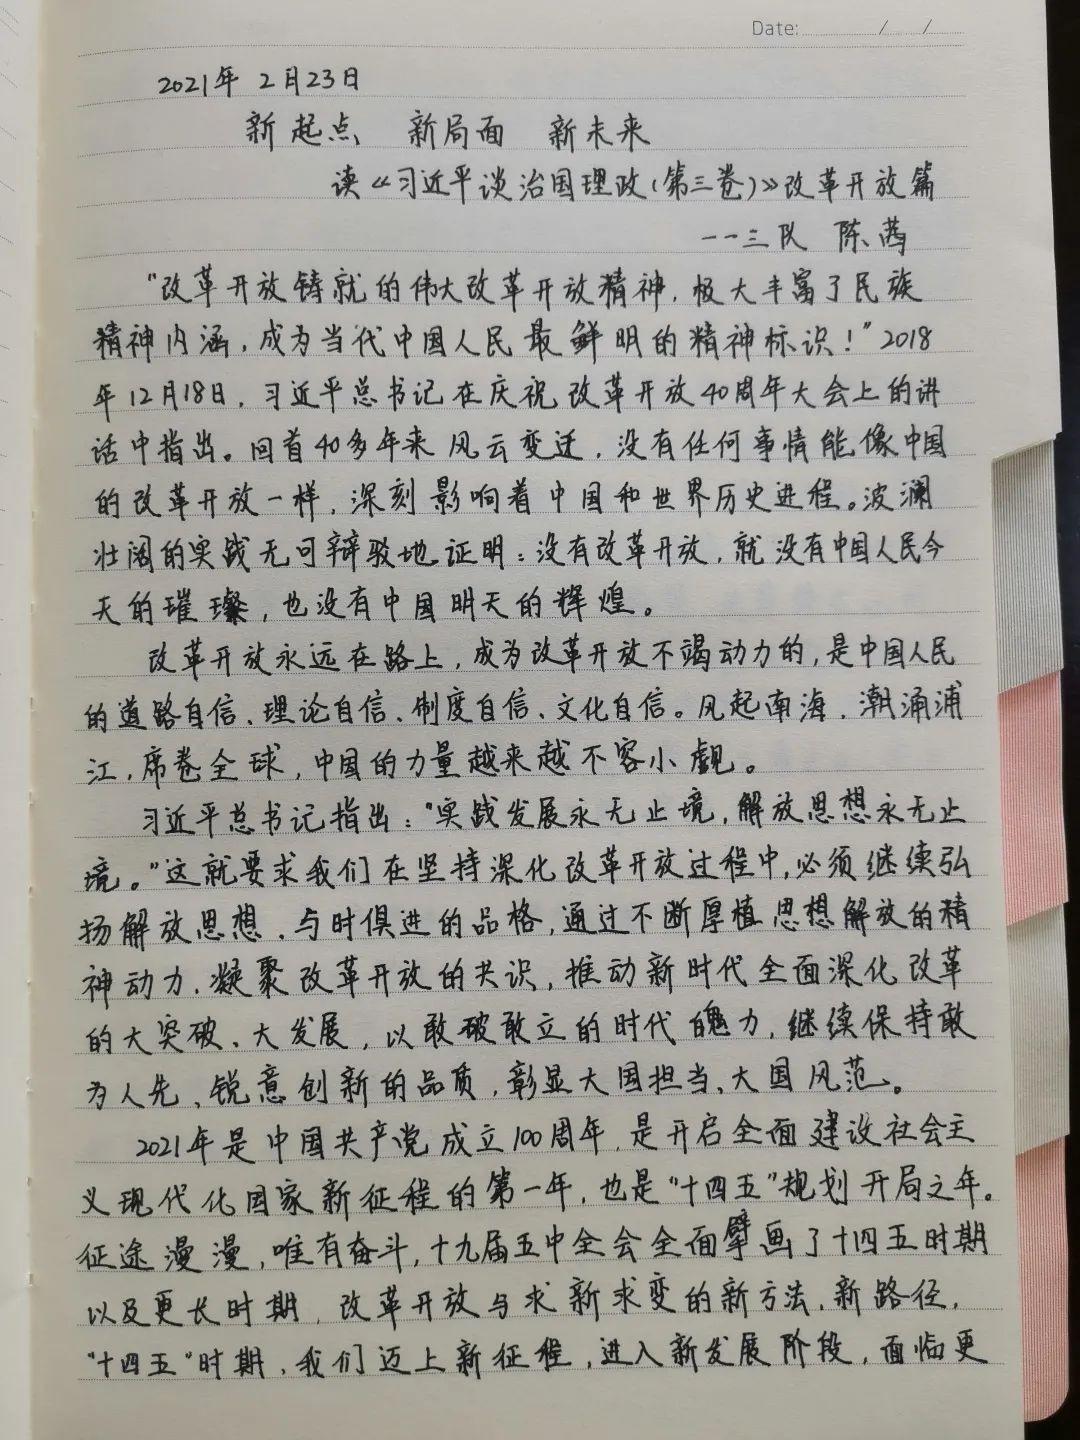 Date: / /
2021年 2月23日
新起点 新局面 新未来
读《习近平谈治国理政(第三卷)》改革开放篇
--三队 陈茜
“改革开放铸就的伟大改革开放精神，极大丰富了民族
精神内涵，成为当代中国人民最鲜明的精神标识！”2018
年12月18日，习近平总书记在庆祝改革开放40周年大会上的讲
话中指出。回首40多年来风云变迁，没有任何事情能像中国
的改革开放一样，深刻影响着中国和世界历史进程。波澜
壮阔的实战无可辩驳地证明：没有改革开放，就没有中国人民今
天的璀璨，也没有中国明天的辉煌。
改革开放永远在路上，成为改革开放不竭动力的，是中国人民
的道路自信、理论自信、制度自信、文化自信。风起南海，潮涌浦
江，席卷全球，中国的力量越来越不容小觑。
习近平总书记指出：“实战发展永无止境，解放思想永无止
境。”这就要求我们在坚持深化改革开放过程中，必须继续弘
扬解放思想、与时俱进的品格，通过不断厚植思想解放的精
神动力，凝聚改革开放的共识，推动新时代全面深化改革
的大突破、大发展，以敢破敢立的时代魄力，继续保持敢
为人先、锐意创新的品质，彰显大国担当、大国风范。
2021年是中国共产党成立100周年，是开启全面建设社会主
义现代化国家新征程的第一年，也是“十四五”规划开局之年。
征途漫漫，唯有奋斗，十九届五中全会全面擘画了十四五时期
以及更长时期，改革开放与求新求变的新方法，新路径，
“十四五”时期，我们迈上新征程，进入新发展阶段，面临更